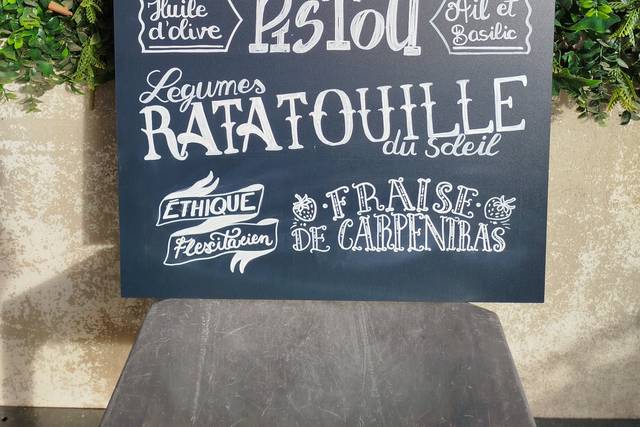 Huile
d'olive
PISTOU
Ail et
Basilic
Légumes
RATATOUILLE
du Soleil
ÉTHIQUE
Flexitarien
FRAISE
DE CARPENTRAS